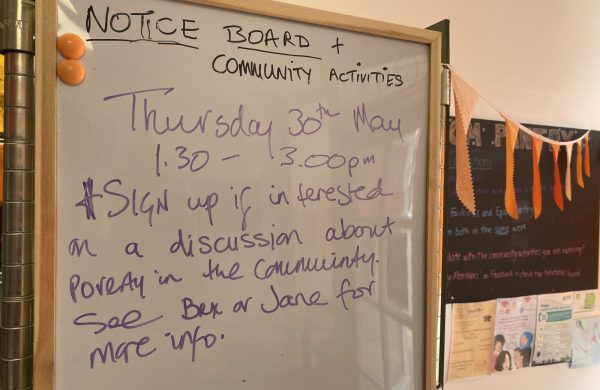 NOTICE BOARD +
COMMUNITY ACTIVITIES
Thursday 30th May
1.30 - 3.00pm
#SIGN up if interested
in a discussion about
poverty in the Community.
See Bex or Jane for
more info.
PANTRY
and
in both in the same week
date with the community activities you are running?
on Facebook + check the timetable board